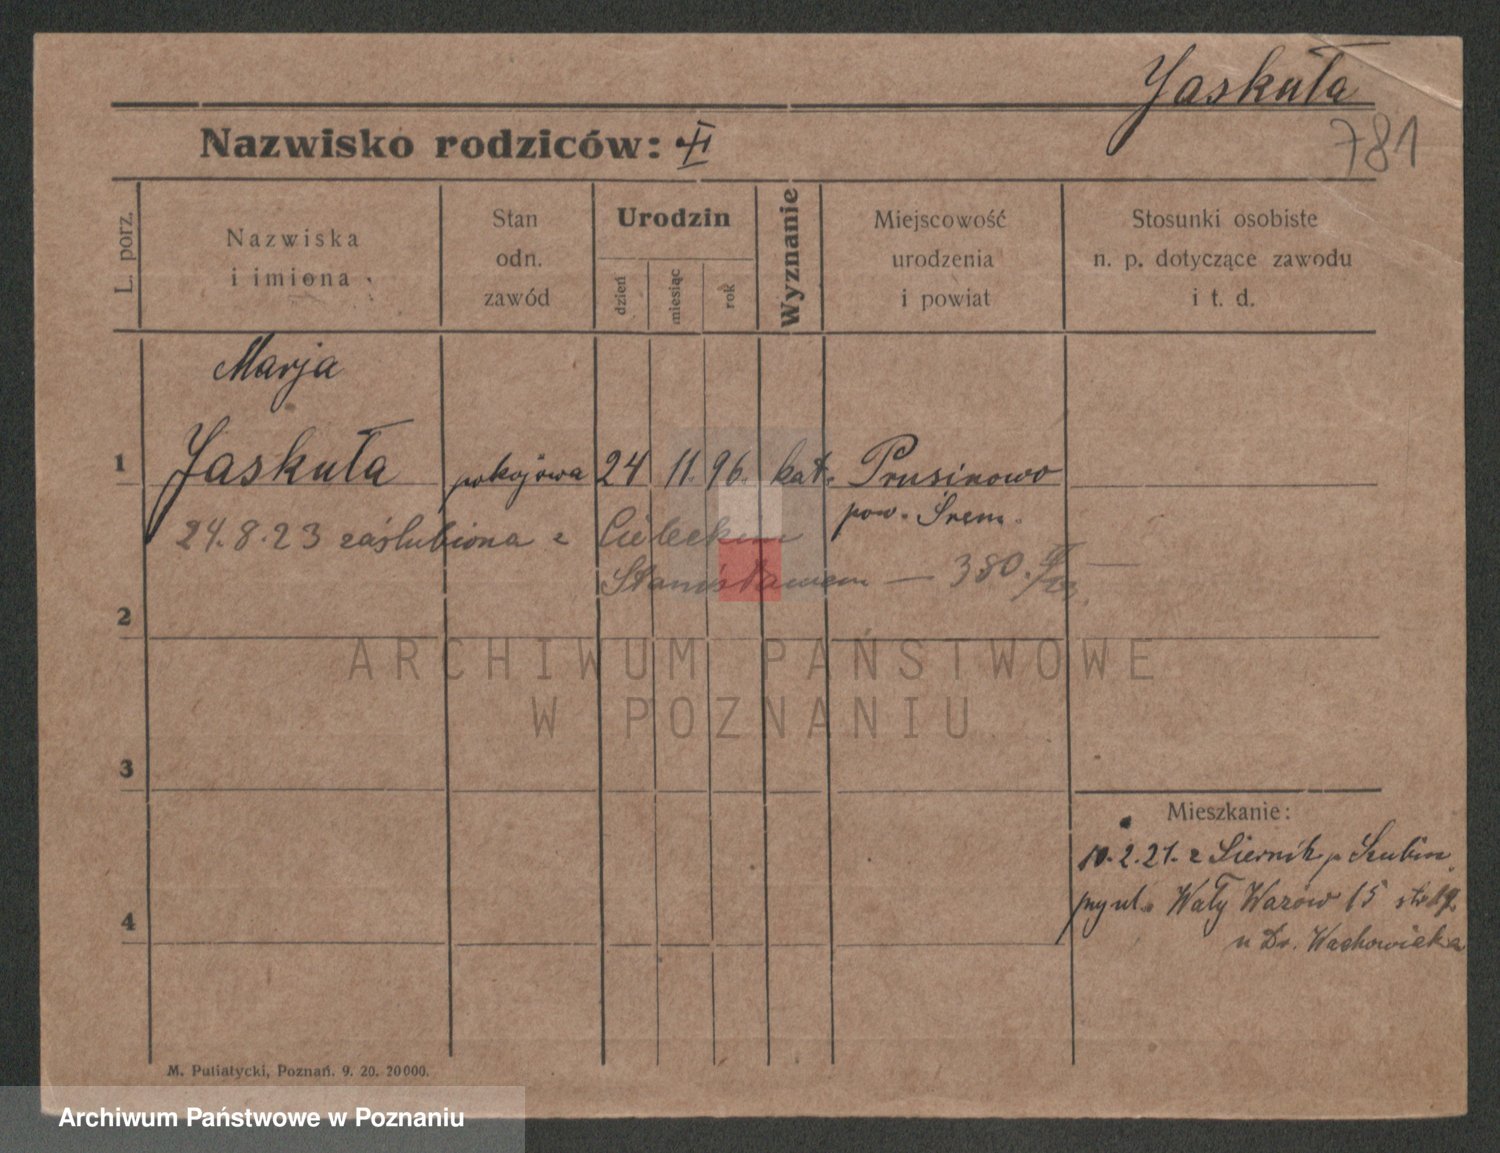 Jaskuła
781
Nazwisko rodziców:
L. porz.
Nazwiska
i imiona
Stan
odn.
zawód
Urodzin
dzień
miesiąc
rok
Wyznanie
Miejscowość
urodzenia
i powiat
Stosunki osobiste
n. p. dotyczące zawodu
i t. d.
Marja
1 Jaskuła pokojowa 24 11. 96. kat. Prusinowo
pow. Śrem.
24.8.23 zaślubiona z Cieleckim
Stanisławem — 380.
2
3
4
ARCHIWUM PAŃSTWOWE
W POZNANIU
Mieszkanie:
10.2.21. z Siernik p. Szubin
ul. Wały Wazów 15
u Dr. Wachowiaka
M. Putiatycki, Poznań. 9. 20. 20000.
Archiwum Państwowe w Poznaniu